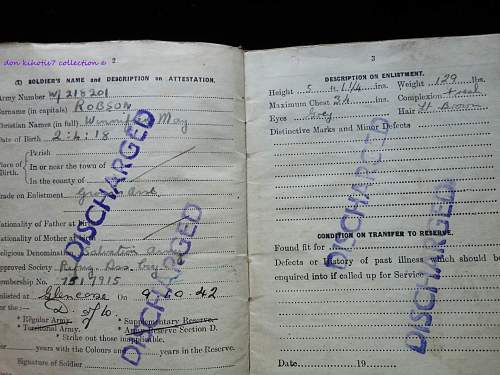 don kihotis7 collection ©
2
(1) SOLDIER'S NAME and DESCRIPTION on ATTESTATION.
Army Number W/218201
Surname (in capitals) ROBSON
Christian Names (in full) Winnifred May
Date of Birth 2:4:18
Place of Birth.
Parish
In or near the town of
In the county of
Trade on Enlistment
Nationality of Father at birth
Nationality of Mother at
Religious Denomination Salvation Army
Approved Society
Membership No. 7517915
Enlisted at Glencorse On 9.10.42
For the :—
* Regular Army. * Supplementary Reserve.
* Territorial Army. * Army Reserve Section D.
* Strike out those inapplicable.
For years with the Colours and years in the Reserve.
Signature of Soldier
DISCHARGED
DISCHARGED
DISCHARGED
3
DESCRIPTION ON ENLISTMENT.
Height 5 ft. 1 1/4 ins. Weight 129 lbs.
Maximum Chest 34 ins. Complexion Fresh
Eyes Grey Hair Lt Brown
Distinctive Marks and Minor Defects
CONDITION ON TRANSFER TO RESERVE.
Found fit for
Defects or History of past illness which should be
enquired into if called up for Service
Date 19
DISCHARGED
DISCHARGED